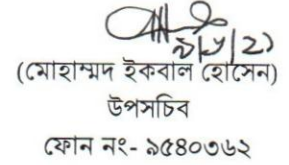 (মোহাম্মদ ইকবাল হোসেন)
উপসচিব
ফোন নং- ৯৫৪০৩৬২